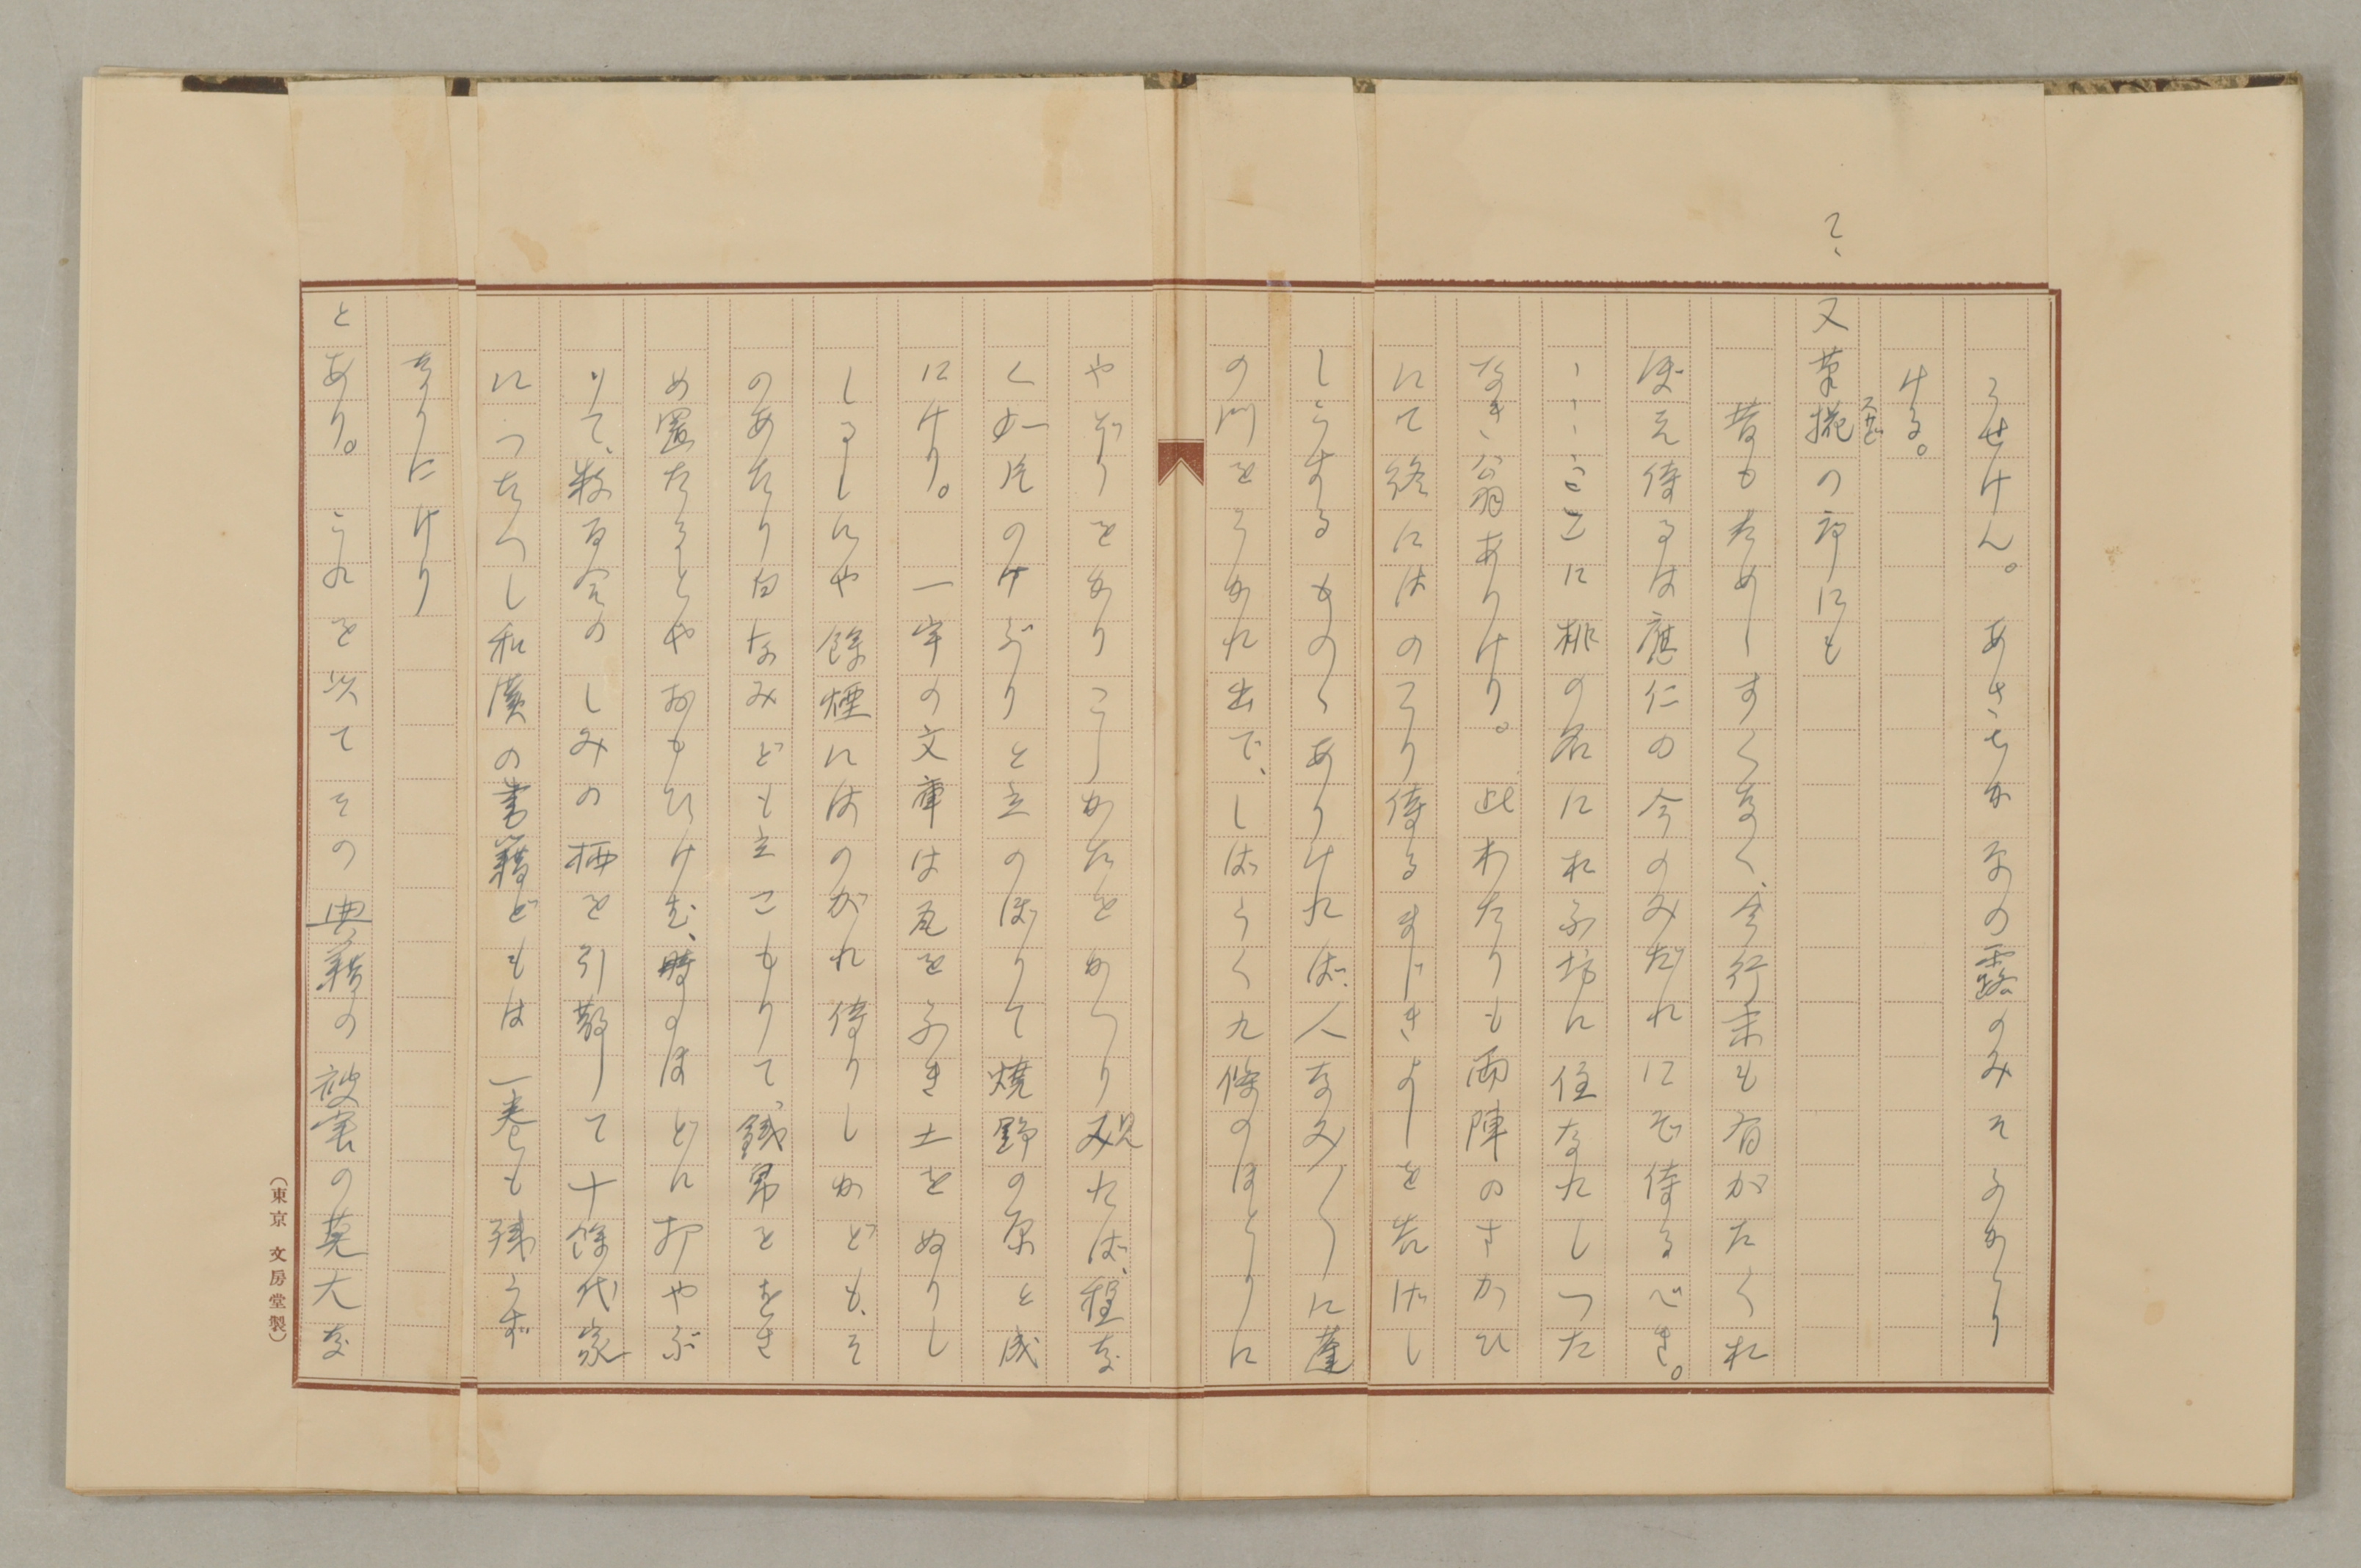 て、
うせけん。あさちかの露のみそふかゝり
ける。
又筆の序にも
昔もためしすくなく、今行末も有がたくお
ぼえ侍るは應仁の今のみだれにぞ侍るべき。
…………こゝに桃の名におふ坊に住なれしつた
なき翁ありけり。此わたりも両陣のさかひ
にて終にはのこり侍るまじきよしを告げし
らするものゝありければ、人なみ〳〵に蓬
の門をうかれ出で、しばらく九條のほとりに
やどりをかりこしかたをかへり覌れば、程な
く一片のけぶりと立のぼりて焼野の原と成
にけり。一宇の文庫は瓦をふき土をぬりし
しるしにや餘煙にはのがれ侍りしかども、そ
のあたり白なみども立こもりて、錢帛ををさ
め置たるとやおもひけむ、時のほどに打やぶ
りて、数百合のしみの栖を引散して十餘代家
につたへし和漢の書籍どもは一巻も残らず
なりにけり
とあり。これを以てその典籍の被害の莫大な
(東京 文房堂製)